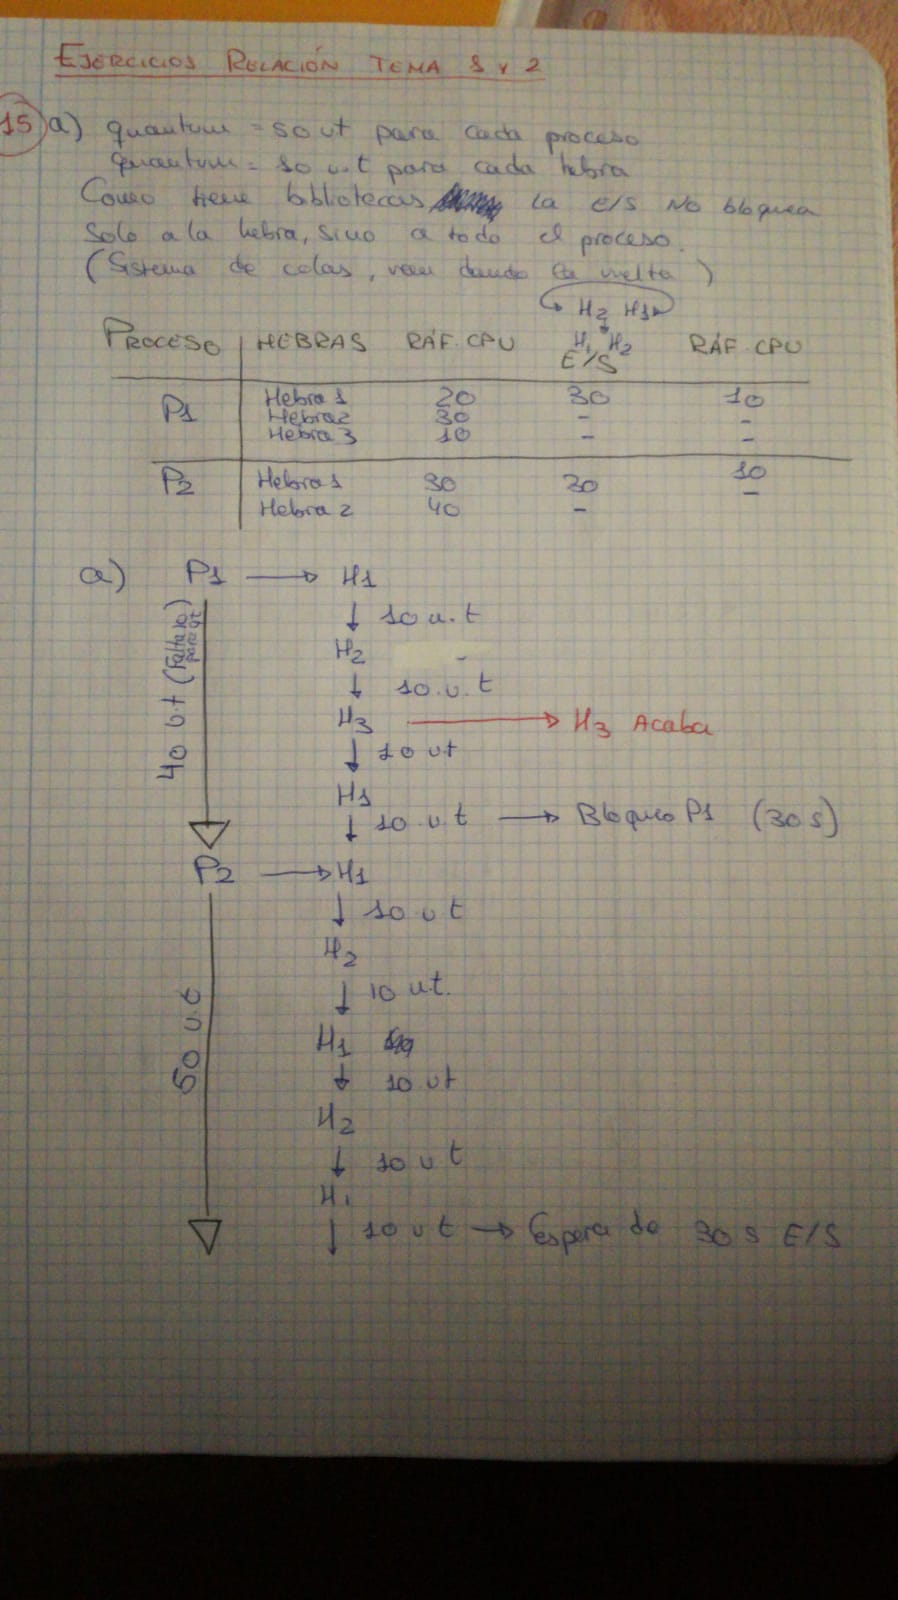 EJERCICIOS RELACIÓN TEMA 1 Y 2
15) a) quantum = 50 ut para cada proceso
quantum = 10 u.t para cada hebra
Como tiene bibliotecas la E/S No bloquea
Solo a la hebra, sino a todo el proceso.
(Sistema de colas, van dando la vuelta)
H2 H1
H1 H2
PROCESO HEBRAS RÁF. CPU E/S RÁF. CPU
P1 Hebra 1 20 30 10
Hebra 2 30 - -
Hebra 3 10 - -
P2 Hebra 1 30 30 10
Hebra 2 40 - -
a) P1 → H1
↓ 10 u.t
H2 -
↓ 10 u.t
40 u.t (Falta 10 para qt)
H3 → H3 Acaba
↓ 10 ut
H1
↓ 10 u.t → Bloqueo P1 (30 s)
P2 → H1
↓ 10 ut
H2
↓ 10 u.t.
50 u.t
H1
↓ 10 ut
H2
↓ 10 ut
H1
↓ 10 ut → Espera de 30 s E/S